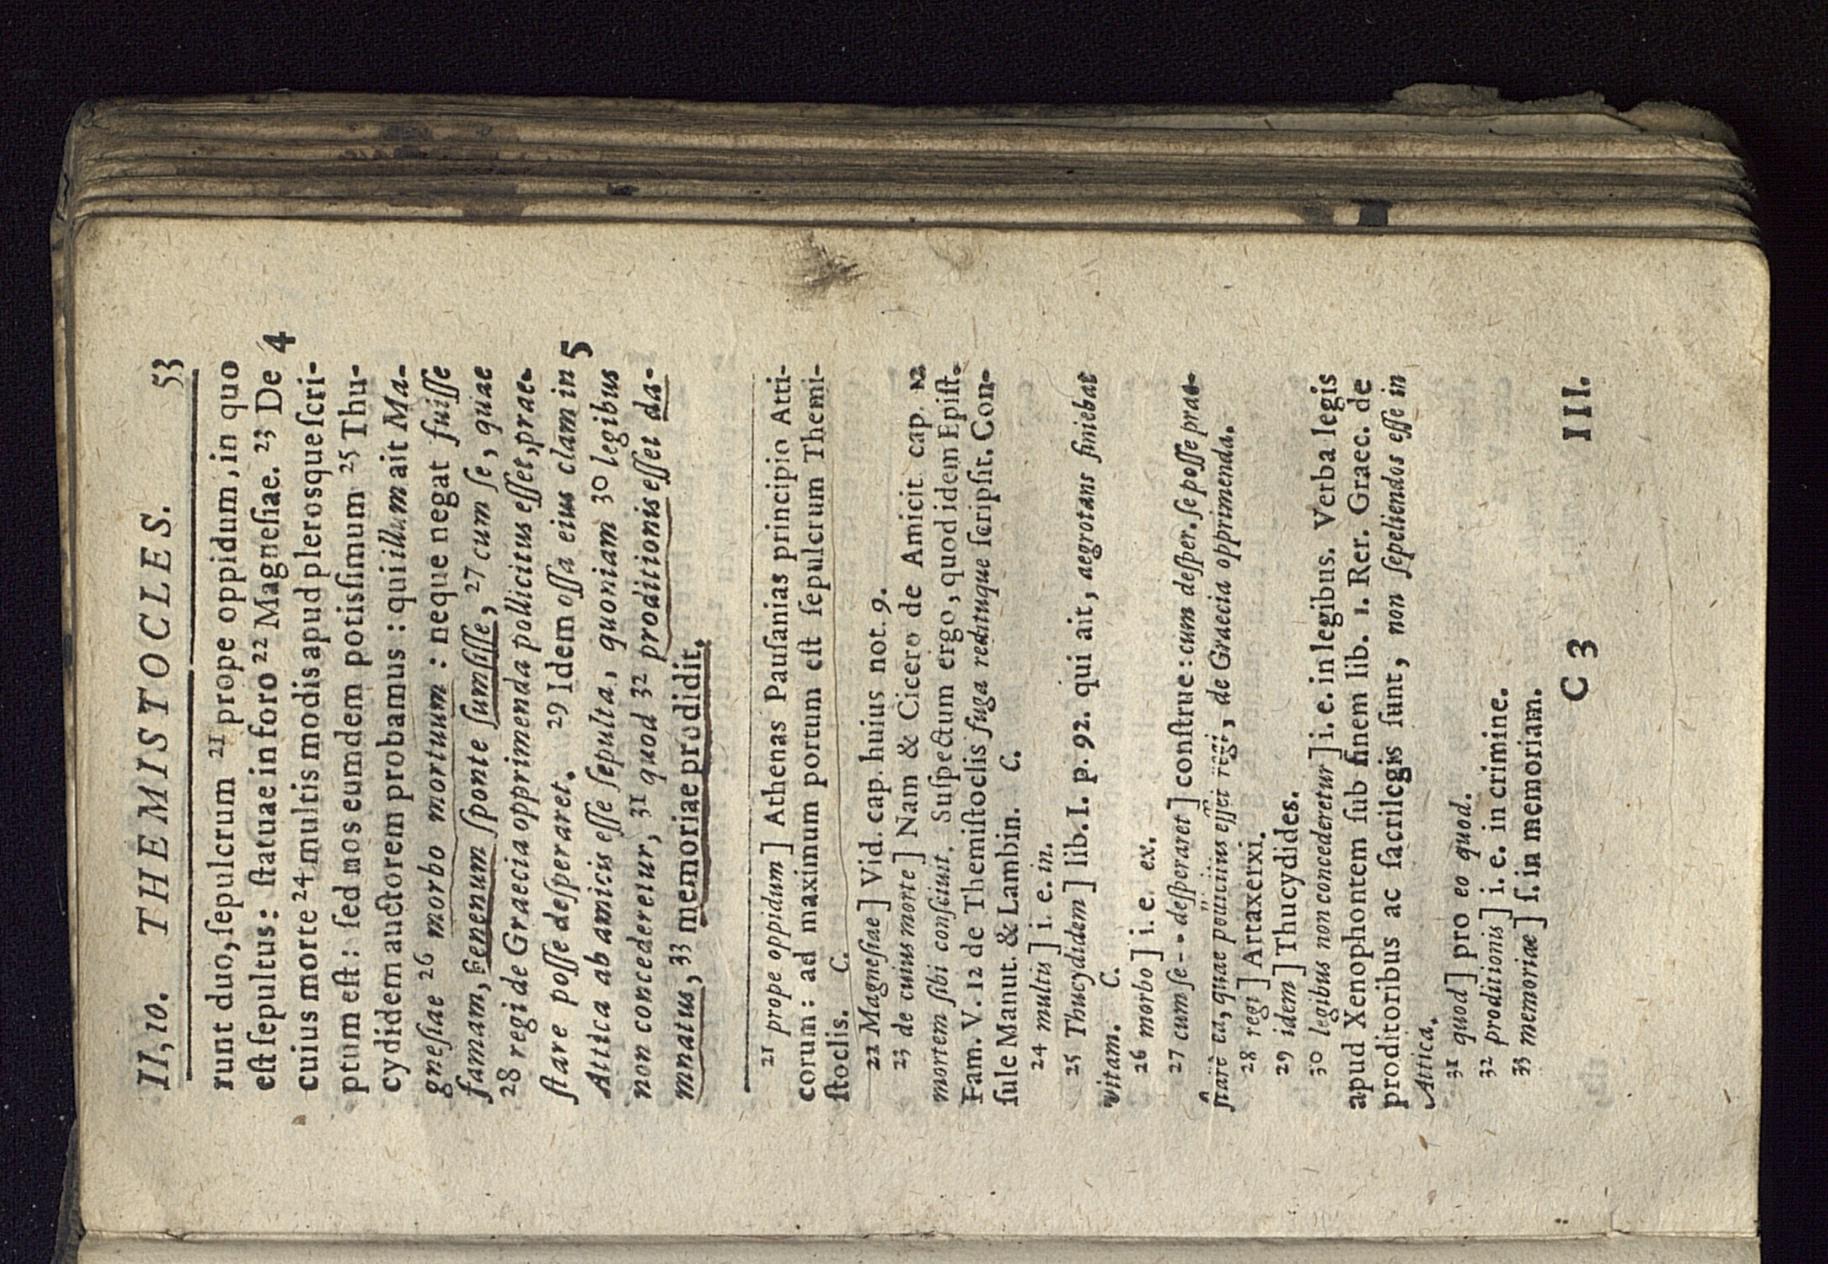 II, 10. THEMISTOCLES. 53
runt duo, ſepulcrum 21 prope oppidum, in quo
eſt ſepultus: ſtatuae in foro 22 Magneſiae. 23 De 4
cuius morte 24 multis modis apud plerosque ſcri-
ptum eſt: ſed nos eumdem potisſimum 25 Thu-
cydidem auctorem probamus: qui illum ait Ma-
gneſiae 26 morbo mortuum: neque negat fuiſſe
famam, venenum ſponte ſumſiſſe, 27 cum ſe, quae
28 regi de Graecia opprimenda pollicitus eſſet, prae-
ſtare poſſe deſperaret. 29 Idem oſſa eius clam in 5
Attica ab amicis eſſe ſepulta, quoniam 30 legibus
non concederetur, 31 quod 32 proditionis eſſet da-
mnatus, 33 memoriae prodidit.
21 prope oppidum] Athenas Pauſanias principio Atti-
corum: ad maximum portum eſt ſepulcrum Themi-
ſtoclis. C.
22 Magneſiae] Vid. cap. huius not. 9.
23 de cuius morte] Nam & Cicero de Amicit. cap. 12
mortem ſibi conſciuit. Suſpectum ergo, quod idem Epiſt.
Fam. V. 12 de Themiſtoclis fuga redituque ſcripſit. Con-
ſule Manut. & Lambin. C.
24 multis] i. e. in.
25 Thucydidem] lib. I. p. 92. qui ait, aegrotans finiebat
vitam. C.
26 morbo] i. e. ex.
27 cum ſe - - deſperaret] conſtrue: cum deſper. ſe poſſe prae-
ſtare ea, quae pollicitus eſſet regi, de Graecia opprimenda.
28 regi] Artaxerxi.
29 idem] Thucydides.
30 legibus non concederetur] i. e. in legibus. Verba legis
apud Xenophontem ſub finem lib. 1. Rer. Graec. de
proditoribus ac ſacrilegis ſunt, non ſepeliendos eſſe in
Attica.
31 quod] pro eo quod.
32 proditionis] i. e. in crimine.
33 memoriae] ſ. in memoriam.
C 3 III.